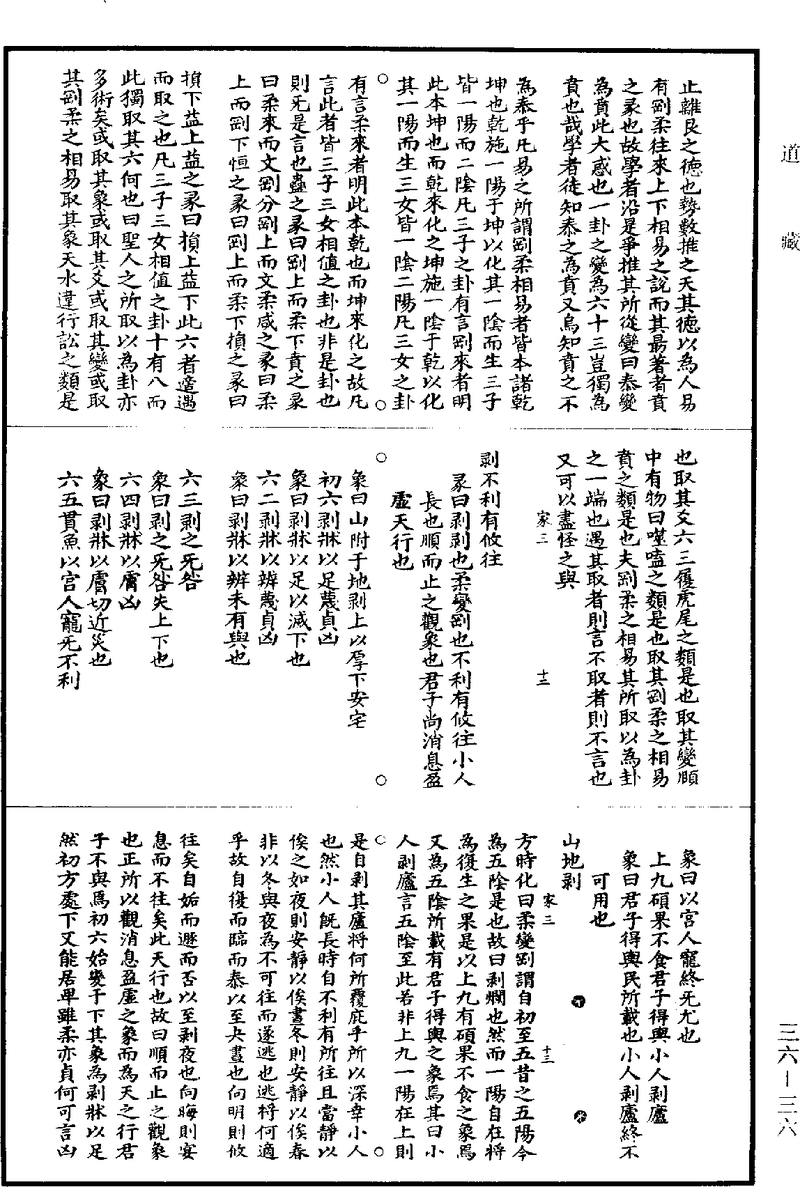 道藏
止離艮之德也勢數推之天其德以為人易
有剛柔往來上下相易之說而其最著者賁
之彖也故學者沿是爭推其所從變曰泰變
為賁此大惑也一卦之變為六十三豈獨為
賁也哉學者徒知泰之為賁又烏知賁之不
為泰乎凡易之所謂剛柔相易者皆本諸乾
坤也乾施一陽于坤以化其一陰而生三子
皆一陽而二陰凡三子之卦有言剛來者明
此本坤也而乾來化之坤施一陰于乾以化
其一陽而生三女皆一陰二陽凡三女之卦
有言柔來者明此本乾也而坤來化之故凡
言此者皆三子三女相值之卦也非是卦也
則无是言也蠱之彖曰剛上而柔下賁之彖
曰柔來而文剛分剛上而文柔咸之彖曰柔
上而剛下恒之彖曰剛上而柔下損之彖曰
損下益上益之彖曰損上益下此六者適遇
而取之也凡三子三女相值之卦十有八而
此獨取其六何也曰聖人之所取以為卦亦
多術矣或取其象或取其爻或取其變或取
其剛柔之相易取其象天水違行訟之類是
也取其爻六三履虎尾之類是也取其變頤
中有物曰噬嗑之類是也取其剛柔之相易
賁之類是也夫剛柔之相易其所取以為卦
之一端也遇其取者則言不取者則不言也
又可以盡怪之與
家三 十三
剝不利有攸往
彖曰剝剝也柔變剛也不利有攸往小人
長也順而止之觀象也君子尚消息盈
虛天行也
象曰山附于地剝上以厚下安宅
初六剝牀以足蔑貞凶
象曰剝牀以足以滅下也
六二剝牀以辨蔑貞凶
象曰剝牀以辨未有與也
六三剝之无咎
象曰剝之无咎失上下也
六四剝牀以膚凶
象曰剝牀以膚切近災也
六五貫魚以宮人寵无不利
象曰以宮人寵終无尤也
上九碩果不食君子得輿小人剝廬
象曰君子得輿民所載也小人剝廬終不
可用也
山地剝
家三 十三
方時化曰柔變剛謂自初至五昔之五陽今
為五陰是也故曰剝爛也然而一陽自在將
為復生之果是以上九有碩果不食之象焉
又為五陰所載有君子得輿之象焉其曰小
人剝廬言五陰至此若非上九一陽在上則
是自剝其廬將何所覆庇乎所以深幸小人
也然小人旣長時自不利有所往且當靜以
俟之如夜則安靜以俟晝冬則安靜以俟春
非以冬與夜為不可往而遂逃也逃將何適
乎故自復而臨而泰以至夬晝也向明則攸
往矣自姤而遯而否以至剝夜也向晦則宴
息而不往矣此天行也故曰順而止之觀象
也正所以觀消息盈虛之象而為天之行君
子不與焉初六始變于下其象為剝牀以足
然初方處下又能居卑雖柔亦貞何可言凶
三六－三六